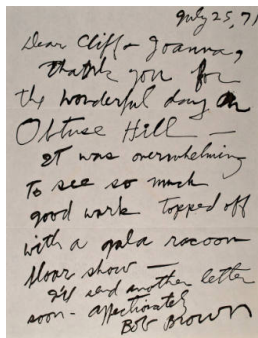 July 25, 71
Dear Cliff + Joanna,
thank you for
the wonderful day on
Obtuse Hill —
It was overwhelming
to see so much
good work topped off
with a gala racoon
floor show —
I'll send another letter
soon - affectionately
Bob Brown